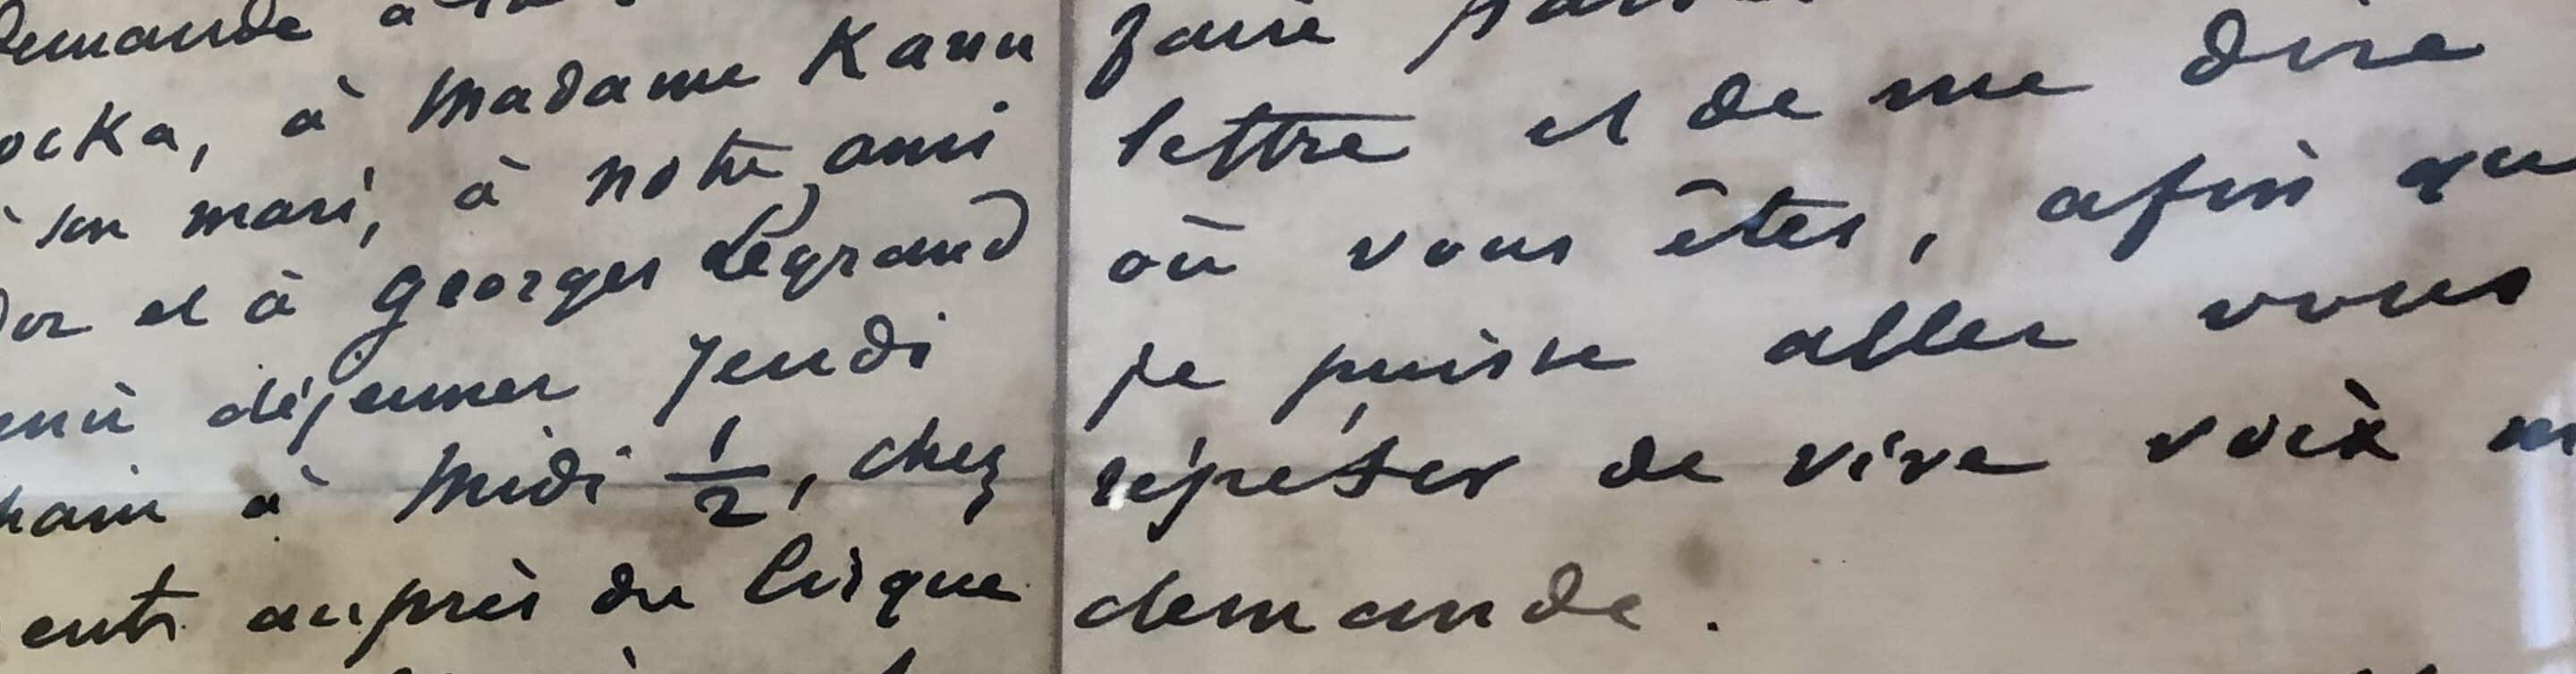 demande à
ocka, à Madame Kann
à son mari, à notre ami
et à Georges Légrand
déjeuner Jeudi
à Midi 1/2, chez
auprès du Cirque
faire
lettre et de me dire
où vous êtes, afin que
je puisse aller vous
répéter de vive voix
demande.